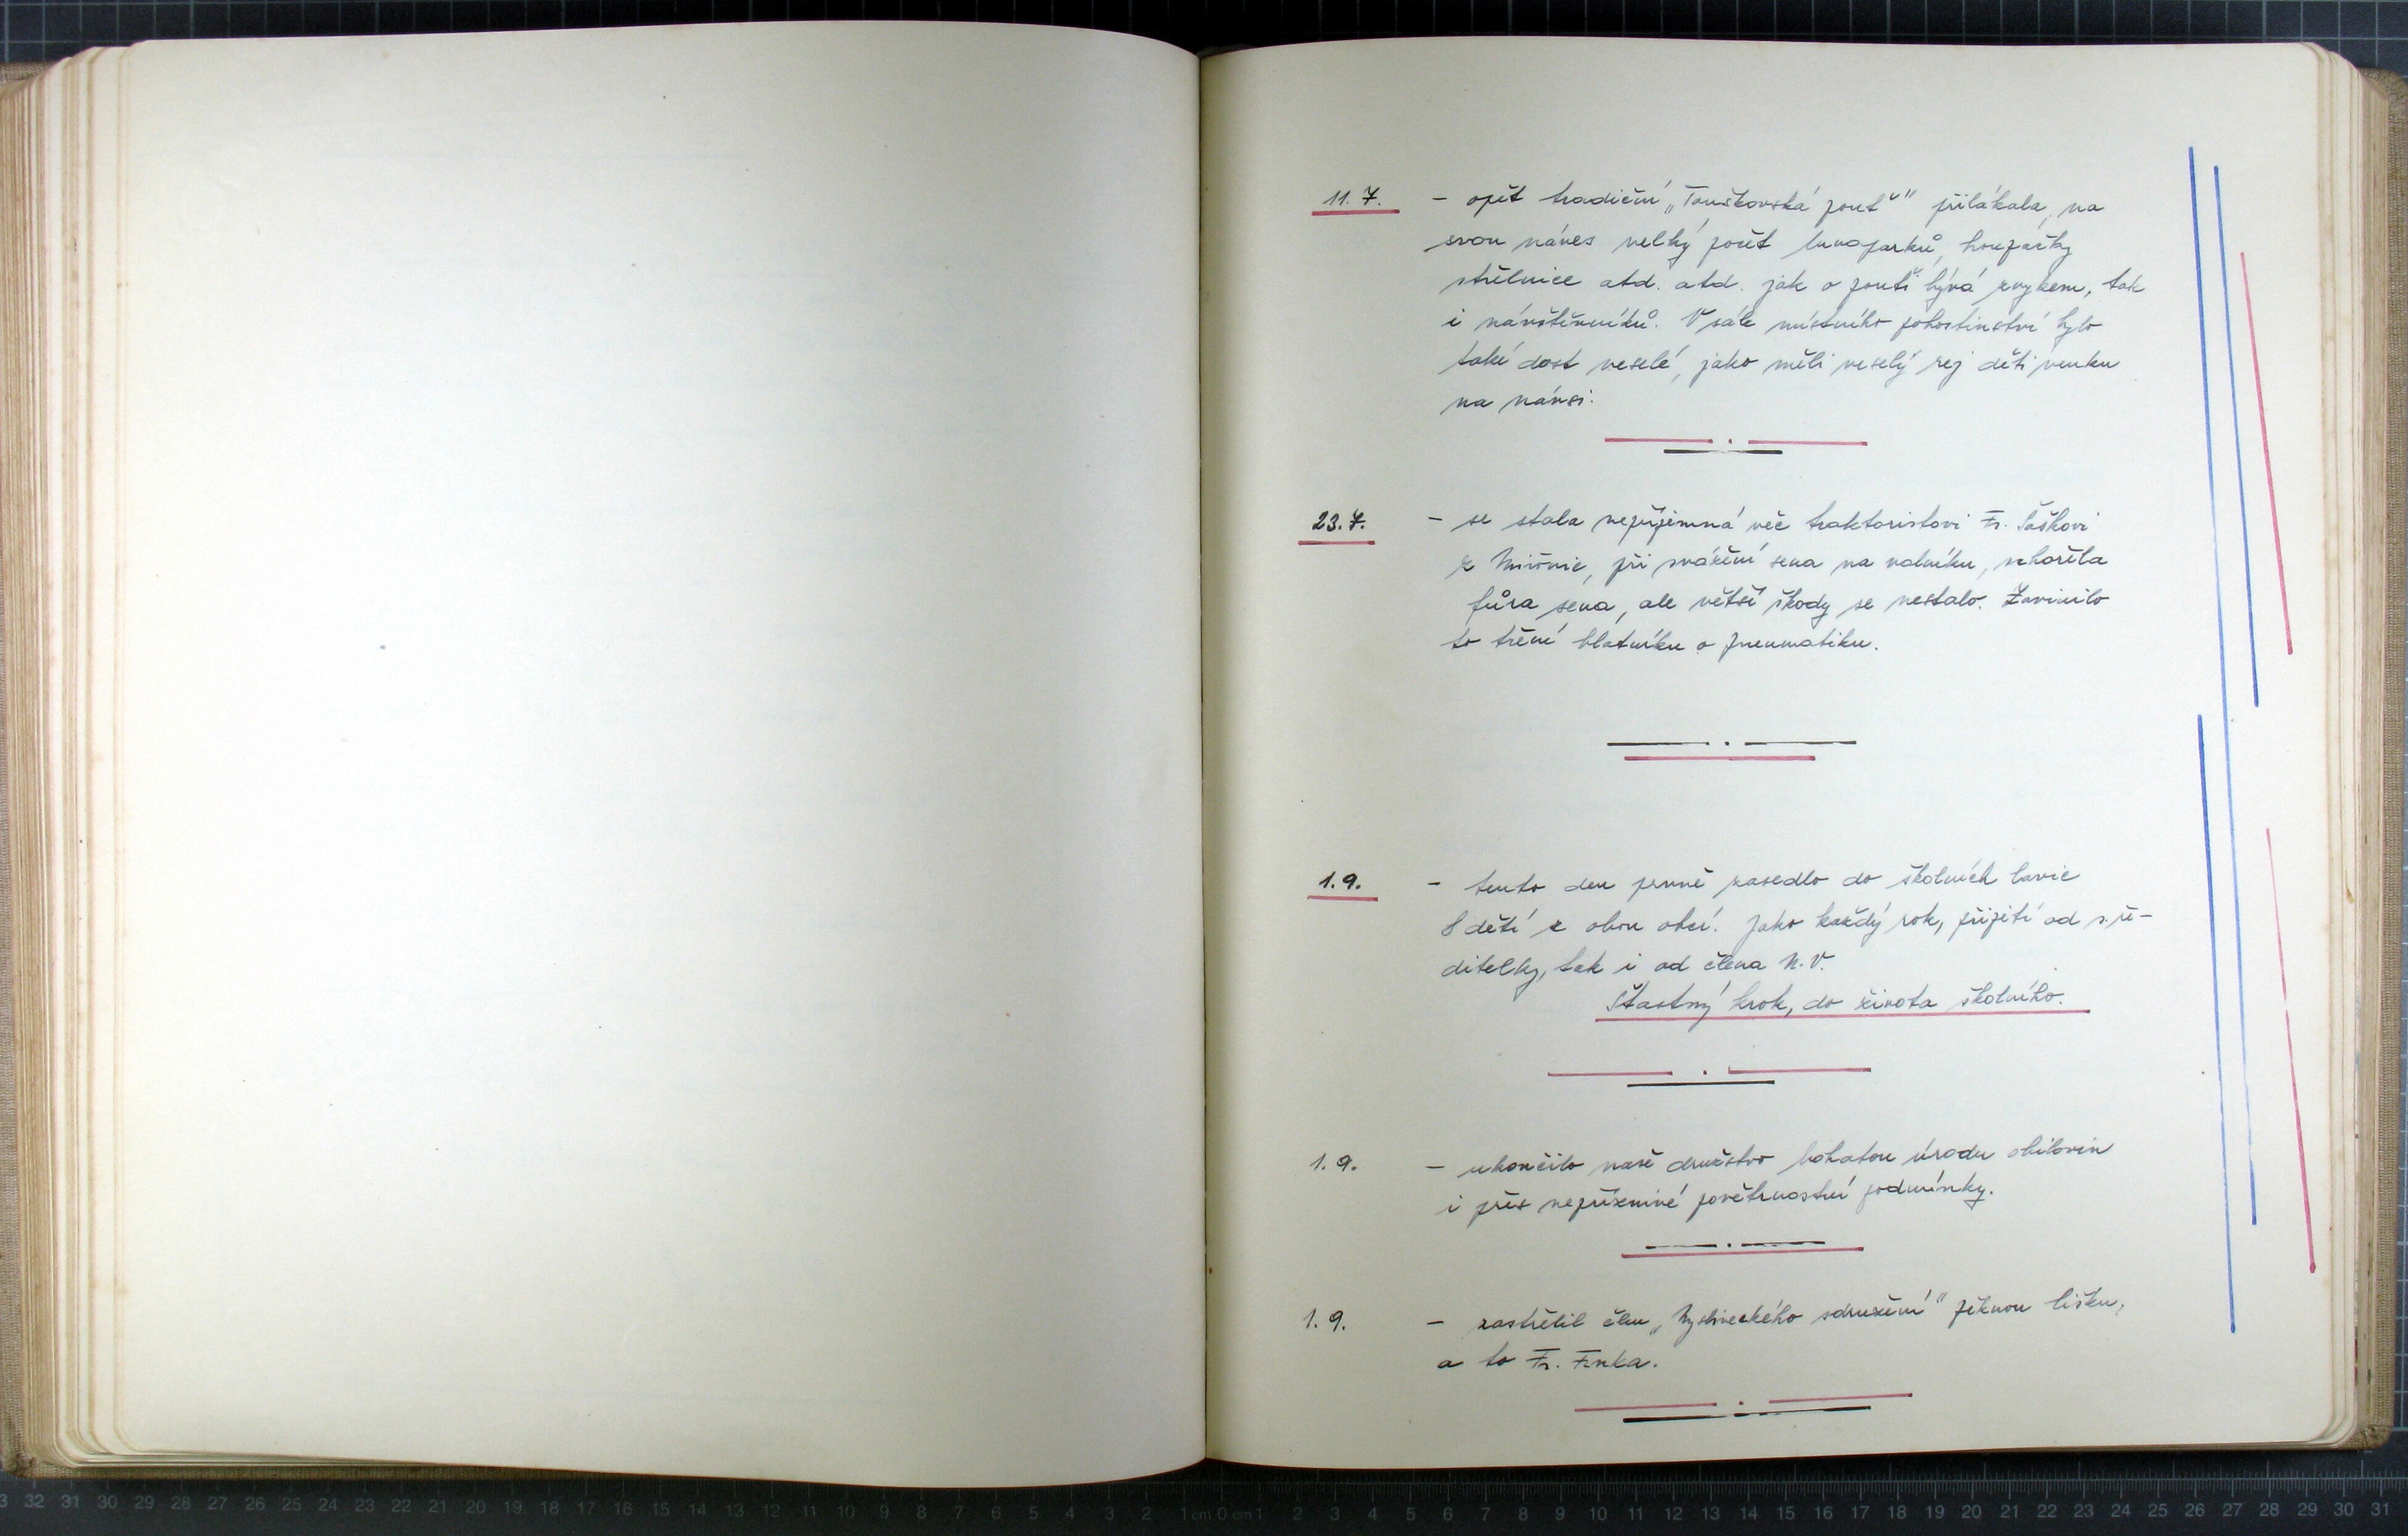 11. 7. - opět tradiční „Touškovská pouť" přilákala, na
svou náves velký počet lunaparků, houpačky
střelnice atd. atd. jak o pouti bývá zvykem, tak
i návštěvníků. V sále místního pohostinství bylo
také dost veselé, jako měli veselý rej děti venku
na návsi.
23. 7. - se stala nepříjemná věc traktoristovi Fr. Saškovi
z Mířovic, při svážení sena na valníku, uhořela
fůra sena, ale větší škody se nestalo. Zavinilo
to tření blatníku o pneumatiku.
1. 9. - tento den prvně zasedlo do školních lavic
8 dětí z obou obcí. Jako každý rok, přijetí od s. ře-
ditelky, tak i od člena N.V.
Šťastný krok, do života školního.
1. 9. - ukončilo naše družstvo bohatou úrodu obilovin
i přes nepříznivé povětrnostní podmínky.
1. 9. - zastřelil člen „Mysliveckého sdružení" pěknou lišku,
a to Fr. Frnka.